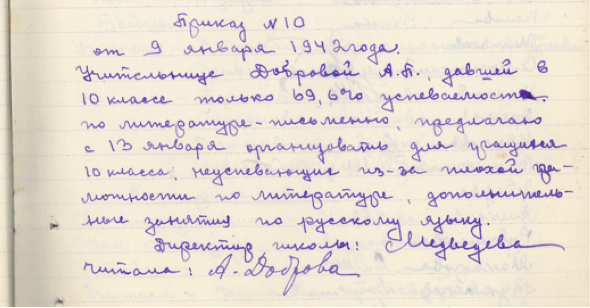 Приказ № 10
от 9 января 1942 года.
Учительнице Добровой А.П., давшей в
10 классе только 69,6% успеваемости
по литературе-письменно, предлагаю
с 13 января организовать для учащихся
10 класса, неуспевающих из-за плохой гра-
мотности по литературе, дополнитель-
ные занятия по русскому языку.
Директор школы: Медведева
Читала: А. Доброва